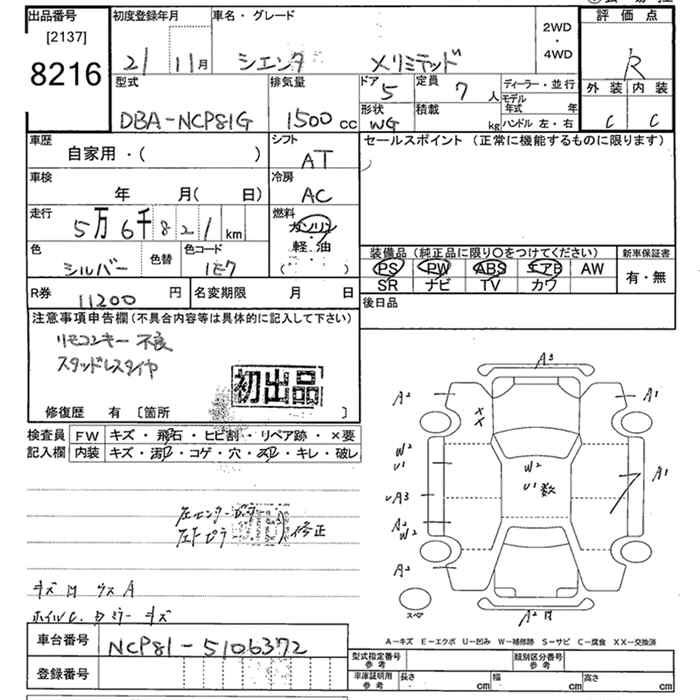 出品番号 初度登録年月 車名・グレード 評価点
[2137] 2WD
8216 21 11月 シエンタ X リミテッド 4WD R
型式 排気量 ドア 5 定員 7人 ディーラー・並行 外装 内装
モデル年式 年
DBA-NCP81G 1500cc 形状 WG 積載 kg ハンドル 左・右 C C
車歴 シフト セールスポイント (正常に機能するものに限ります)
自家用・( ) AT
車検 冷房
年 月( 日) AC
走行 燃料
5万6千821km ガソリン
色 色替 色コード 軽・油
シルバー 1E7 ( )
装備品(純正品に限り〇をつけてください) 新車保証書
PS PW ABS エアB AW 有・無
SR ナビ TV カワ
R券 11200円 名変期限 月 日 後日品
注意事項申告欄(不具合内容等は具体的に記入して下さい)
リモコンキー不良
スタッドレスタイヤ
初出品
修復歴 有 [箇所 ]
検査員 FW キズ・飛石・ヒビ割・リペア跡・×要
記入欄 内装 キズ・汚レ・コゲ・穴・スレ・キレ・破レ
A3
A2 XX A1
W2 U1 W2 U1 数 A1
UA3
A2 W2
A2
スペア A2
左センターピラー
修正
キズ
キズ
車台番号 NCP81-5106372
登録番号
A-キズ E-エクボ U-凹み W-補修跡 S-サビ C-腐食 XX-交換済
型式指定番号 参考 類別区分番号 参考
車庫証明用 参考 長さ cm 幅 cm 高さ cm